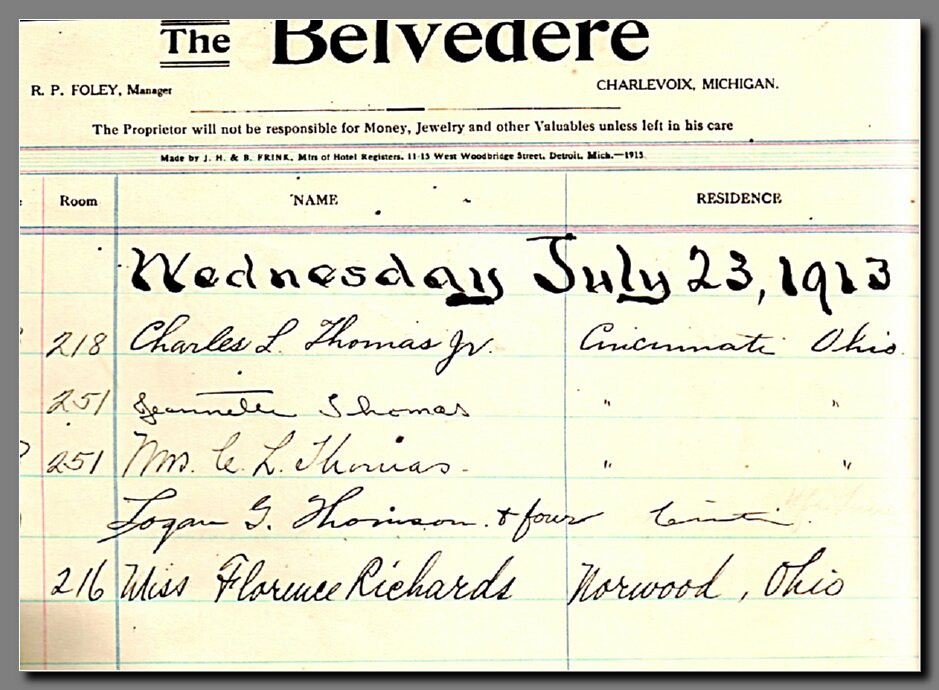 The Belvedere
R. P. FOLEY, Manager CHARLEVOIX, MICHIGAN.
The Proprietor will not be responsible for Money, Jewelry and other Valuables unless left in his care
Made by J. H. & B. FRINK, Mfrs of Hotel Registers, 11-15 West Woodbridge Street, Detroit, Mich.—1913
Room NAME RESIDENCE
Wednesday July 23, 1913
218 Charles L. Thomas Jr. Cincinnati Ohio.
251 Jeannette Thomas " "
251 Mrs. C. L. Thomas. " "
Logan G. Thomson. & four Cinti.
216 Miss Florence Richards Norwood, Ohio